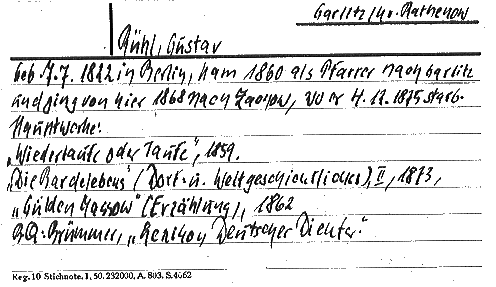 Garlitz/Kr. Rathenow
Rühl, Gustav
geb. 7.7. 1822 in Berlin, kam 1860 als Pfarrer nach Garlitz
und ging von hier 1868 nach, wo er 4.12.1875 starb.
Hauptwerke:
„Wiedertaufe oder Taufe", 1859.
„Die Bardeleben" (Dorf- u. Weltgeschichtliches), II, 1873,
„Gülden" (Erzählung), 1862
BQ. Brümmer, „Lexikon Deutscher Dichter."
Reg. 10 Stichnote. 1, 50. 232000, A. 803. S. 4662